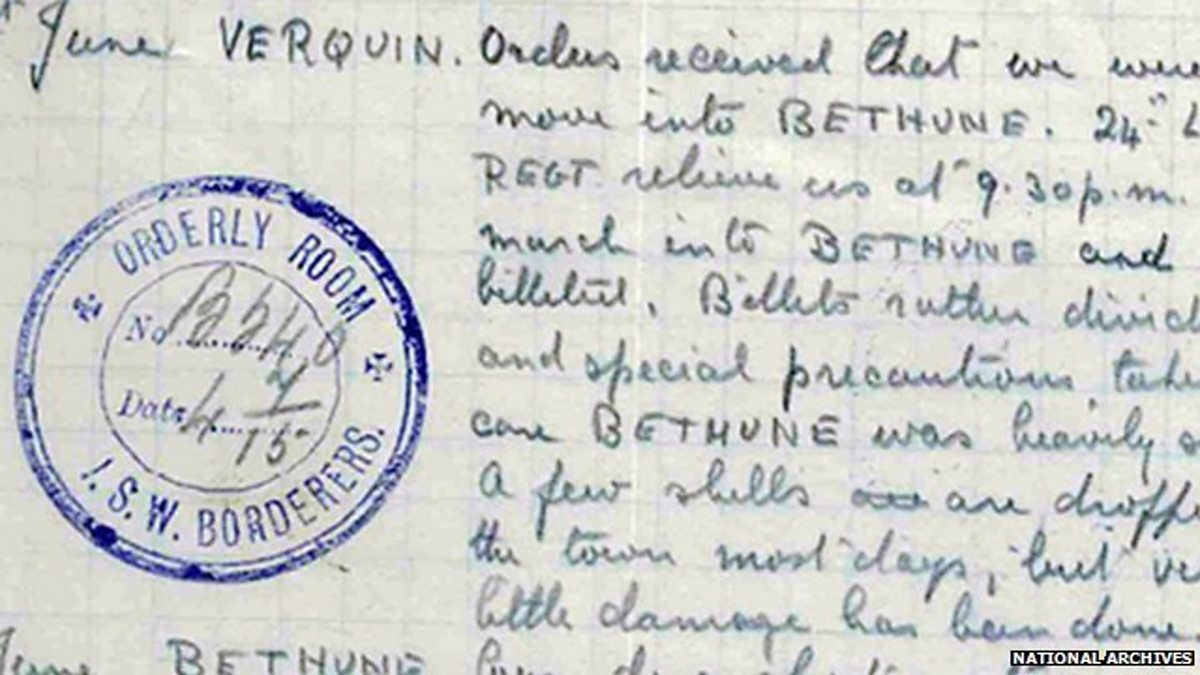 June VERQUIN. Orders received that we were
move into BETHUNE. 24th L
REGT relieve us at 9.30p.m.
march into BETHUNE and
billeted. Billets rather divid
and special precautions take
case BETHUNE was heavily s
A few shells are dropp
the town most days, but ve
little damage has been done
June BETHUNE
ORDERLY ROOM
No B240
Date 4 7 15
1. S. W. BORDERERS.
NATIONAL ARCHIVES